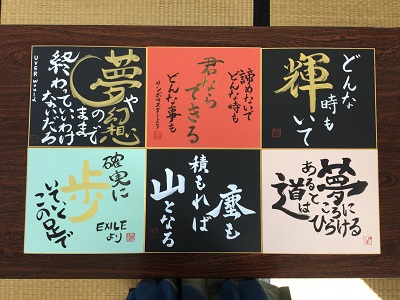 夢や幻想
のままで
終わっていいわけ
ないだろ
UVER World
諦めないで
どんな時も
君なら
できる
どんな事も
サンボマスターより
どんな
時も
輝いて
確実に
歩
いていく
この足で
EXILE
より
塵も
積もれば
山となる
夢
あると
ころに
道は
ひらける